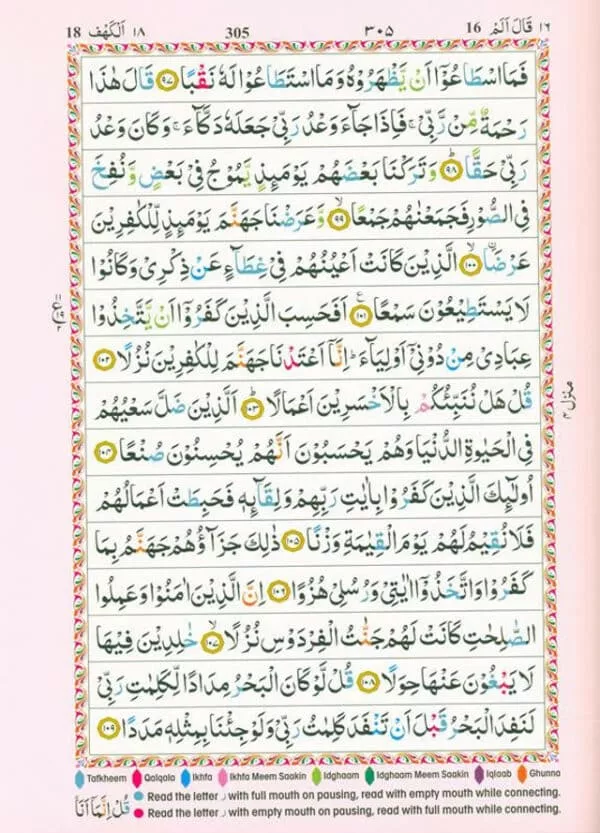 ١٦ قَالَ اَلَمْ 16 ٣٠٥ 305 ١٨ اَلْكَهْف 18
فَمَا اسْطَاعُوْۤا اَنْ يَّظْهَرُوْهُ وَمَا اسْتَطَاعُوْا لَهٗ نَقْبًا ﴿٩٧﴾ قَالَ هٰذَا
رَحْمَةٌ مِّنْ رَّبِّيْ ۚ فَاِذَا جَآءَ وَعْدُ رَبِّيْ جَعَلَهٗ دَكَّآءَ ۚ وَكَانَ وَعْدُ
رَبِّيْ حَقًّا ﴿٩٨﴾ؕ وَتَرَكْنَا بَعْضَهُمْ يَوْمَئِذٍ يَّمُوْجُ فِيْ بَعْضٍ وَّنُفِخَ
فِي الصُّوْرِ فَجَمَعْنٰهُمْ جَمْعًا ﴿٩٩﴾ۙ وَّعَرَضْنَا جَهَنَّمَ يَوْمَئِذٍ لِّلْكٰفِرِيْنَ
عَرْضَا ﴿١٠٠﴾ۙ الَّذِيْنَ كَانَتْ اَعْيُنُهُمْ فِيْ غِطَآءٍ عَنْ ذِكْرِيْ وَكَانُوْا
لَا يَسْتَطِيْعُوْنَ سَمْعًا ﴿١٠١﴾ع اَفَحَسِبَ الَّذِيْنَ كَفَرُوْۤا اَنْ يَّتَّخِذُوْا
عِبَادِيْ مِنْ دُوْنِيْۤ اَوْلِيَآءَ ؕ اِنَّاۤ اَعْتَدْنَا جَهَنَّمَ لِلْكٰفِرِيْنَ نُزُلًا ﴿١٠٢﴾
قُلْ هَلْ نُنَبِّئُكُمْ بِالْاَخْسَرِيْنَ اَعْمَالًا ﴿١٠٣﴾ؕ اَلَّذِيْنَ ضَلَّ سَعْيُهُمْ
فِي الْحَيٰوةِ الدُّنْيَا وَهُمْ يَحْسَبُوْنَ اَنَّهُمْ يُحْسِنُوْنَ صُنْعًا ﴿١٠٤﴾
اُولٰٓئِكَ الَّذِيْنَ كَفَرُوْا بِاٰيٰتِ رَبِّهِمْ وَلِقَآئِهٖ فَحَبِطَتْ اَعْمَالُهُمْ
فَلَا نُقِيْمُ لَهُمْ يَوْمَ الْقِيٰمَةِ وَزْنًا ﴿١٠٥﴾ ذٰلِكَ جَزَآؤُهُمْ جَهَنَّمُ بِمَا
كَفَرُوْا وَاتَّخَذُوْۤا اٰيٰتِيْ وَرُسُلِيْ هُزُوًا ﴿١٠٦﴾ اِنَّ الَّذِيْنَ اٰمَنُوْا وَعَمِلُوا
الصّٰلِحٰتِ كَانَتْ لَهُمْ جَنّٰتُ الْفِرْدَوْسِ نُزُلًا ﴿١٠٧﴾ۙ خٰلِدِيْنَ فِيْهَا
لَا يَبْغُوْنَ عَنْهَا حِوَلًا ﴿١٠٨﴾ قُلْ لَّوْ كَانَ الْبَحْرُ مِدَادًا لِّكَلِمٰتِ رَبِّيْ
لَنَفِدَ الْبَحْرُ قَبْلَ اَنْ تَنْفَدَ كَلِمٰتُ رَبِّيْ وَلَوْ جِئْنَا بِمِثْلِهٖ مَدَدًا ﴿١٠٩﴾
منزل ٤
Tafkheem Qalqala Ikhfa Ikhfa Meem Saakin Idghaam Idghaam Meem Saakin Iqlaab Ghunna
قُلْ اِنَّمَاۤ اَنَا
Read the letter ر with full mouth on pausing, read with empty mouth while connecting.
Read the letter ر with empty mouth on pausing, read with full mouth while connecting.